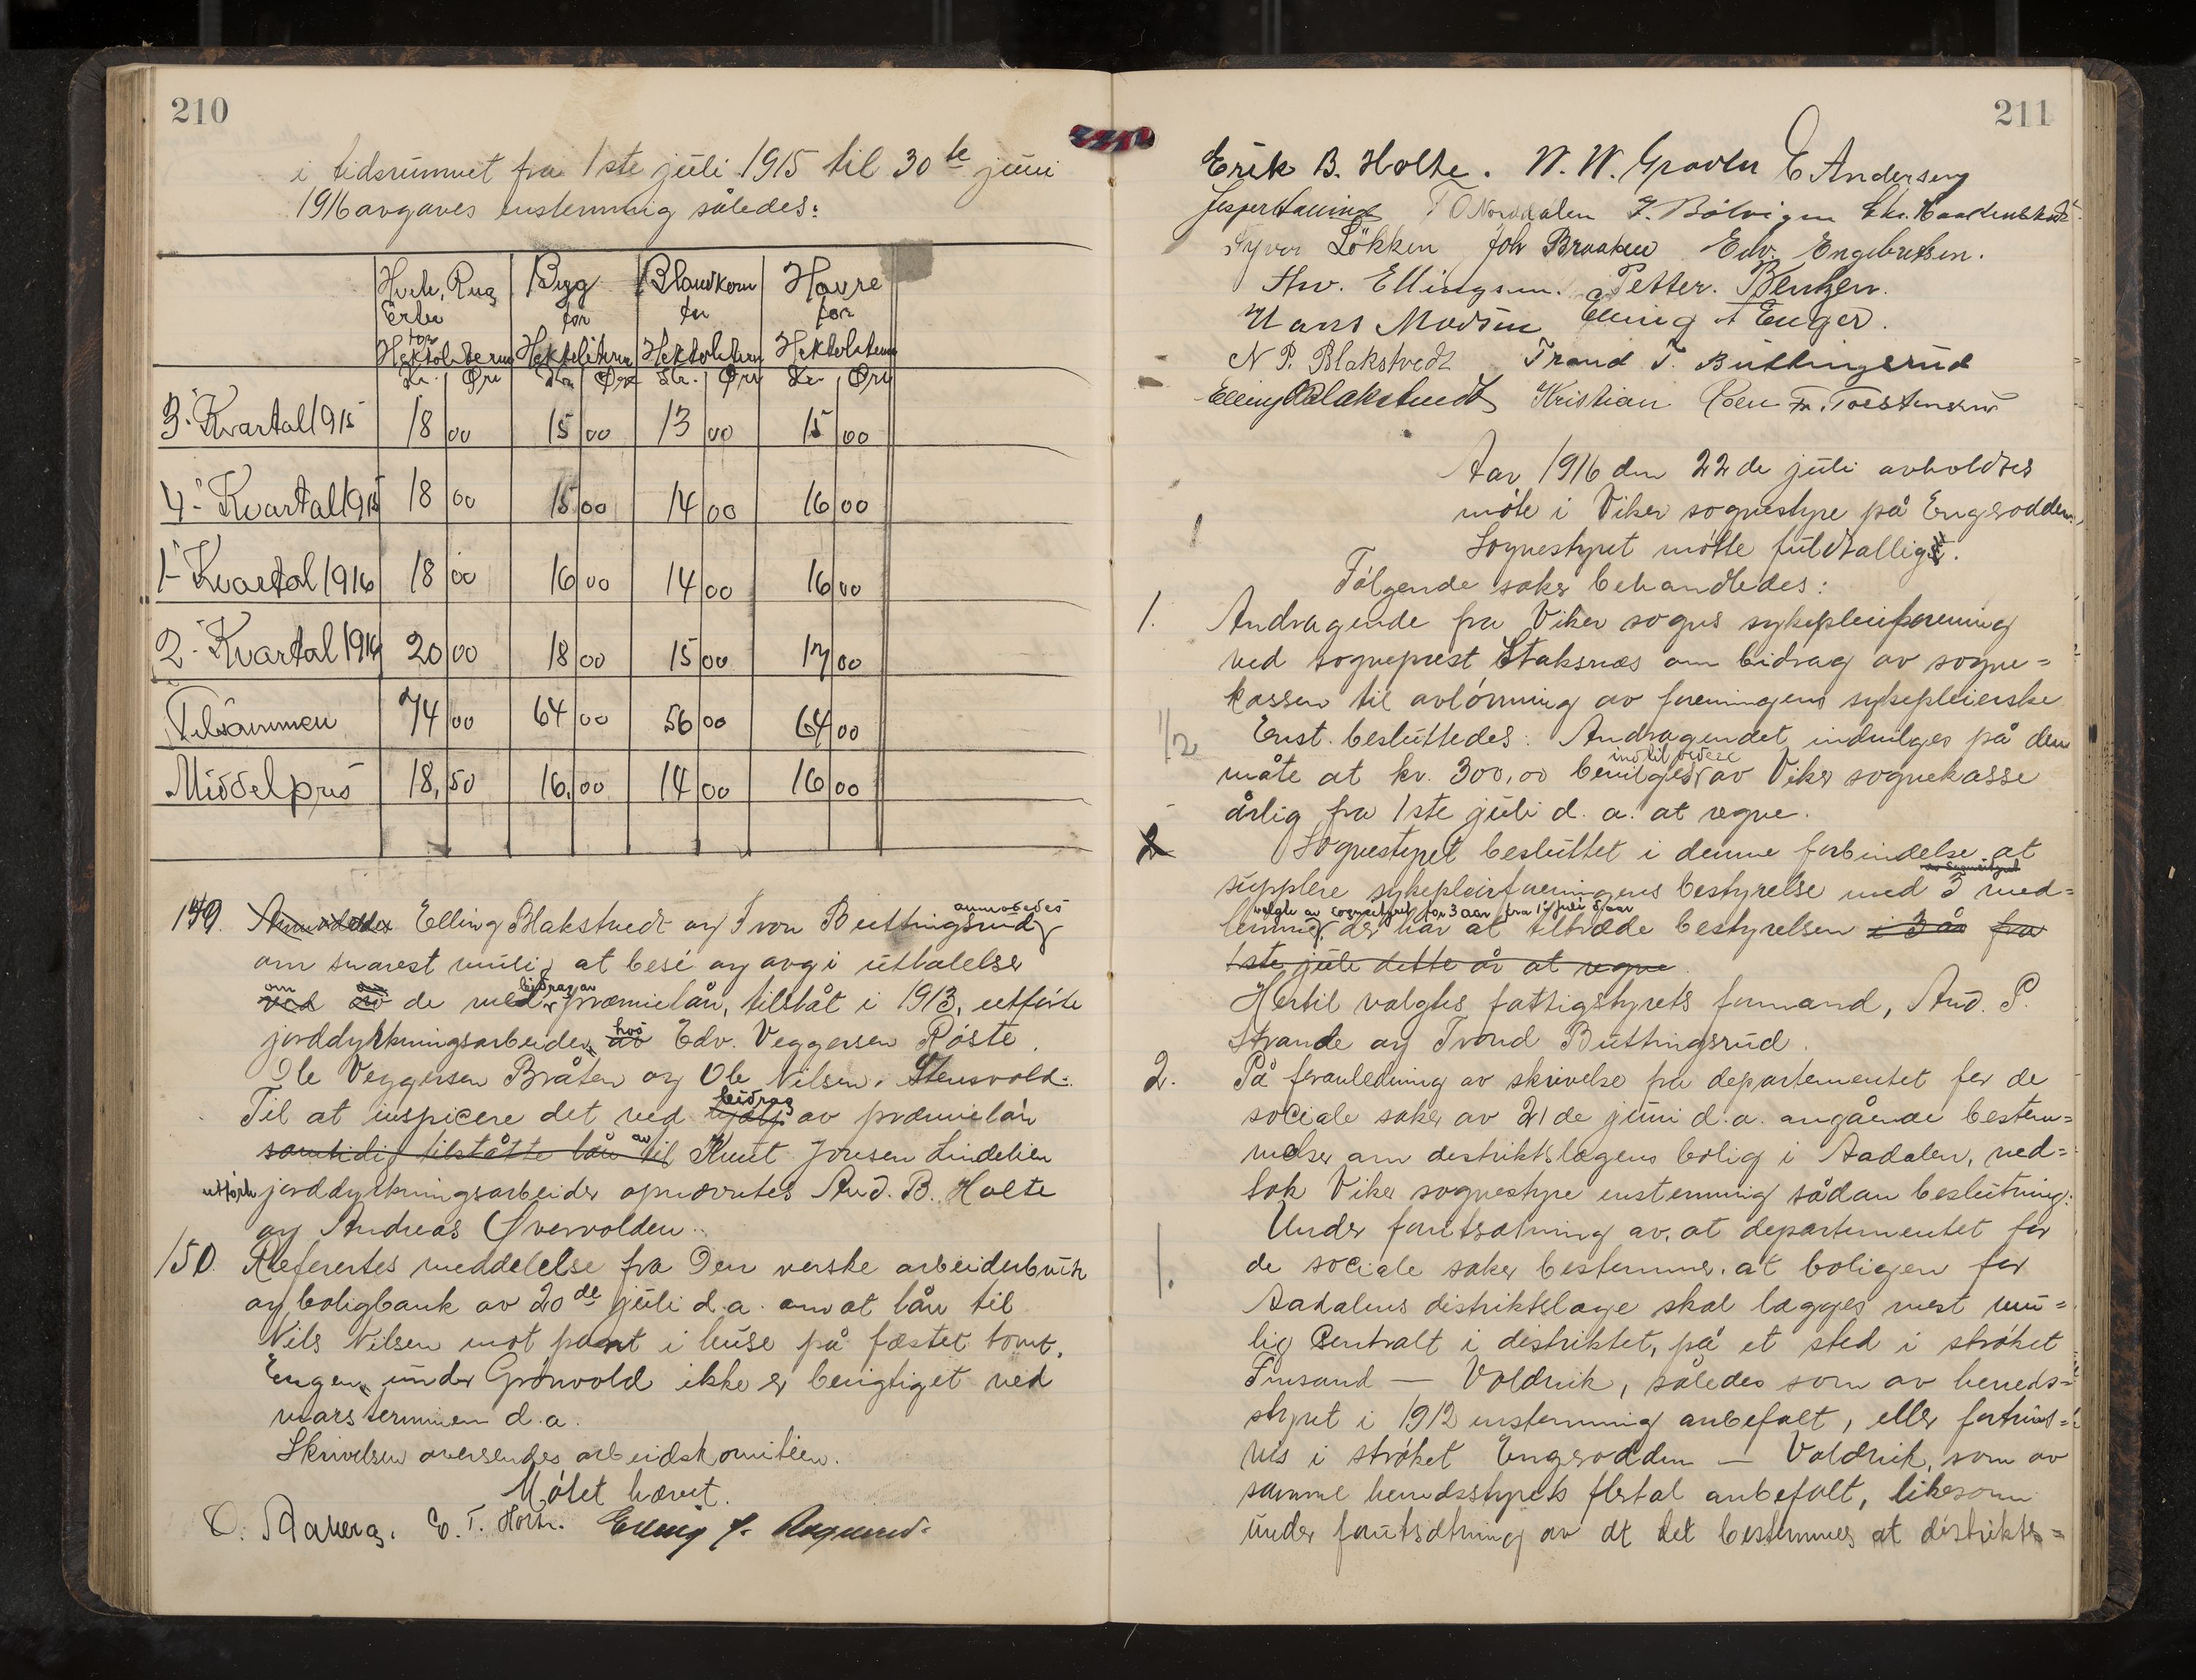 210
i tidsrummet fra 1ste juli 1915 til 30te juni
1916 avgaves enstemmig således:
Hvete, Rug Erter for Hektoliteren | Byg for Hektoliteren | Blandkorn for Hektoliteren | Havre for Hektoliteren
Kr. Øre | Kr. Øre | Kr. Øre | Kr. Øre
3. Kvartal 1915 18 00 15 00 13 00 15 00
4. Kvartal 1915 18 00 15 00 14 00 16 00
1. Kvartal 1916 18 00 16 00 14 00 16 00
2. Kvartal 1916 20 00 18 00 15 00 17 00
Tilsammen 74 00 64 00 56 00 64 00
Middelpris 18,50 16,00 14 00 16 00
149. Elling Blakstvedt og Tron Buttingsrud anmodedes
om snarest mulig at bese og avgi uttalelse
om de ved bidrag av præmielån, tilståt i 1913, utførte
jorddyrkningsarbeider hos Edv. Veggersen Røste.
Ole Veggersen Bråten og Ole Nilsen Stensvold.
Til at inspicere det ved bidrag av præmielån
samtidig tilståtte lån til av Knut Jonsen Lindelien
utførte jorddyrkningsarbeider opnævntes And. B. Holte
og Andreas Øvervolden.
150. Referertes meddelelse fra Den norske arbeiderbruk
og boligbank av 20de juli d.a. om at lån til
Nils Nilsen mot pant i huse på fæstet tomt,
Engen under Grønvold ikke er berigtiget ved
marsterminen d.a.
Skrivelsen oversendes arbeidskomiteen.
Møtet hævet.
O. Aaberg. E. T. Holte. Elling
211
Erik B. Holte. N. W. Gravli E Andersen
Jesper Hauing T O Norddalen J. Bölvigen Chr.
Syver Løkken Joh Braaten Edv. Engebretsen.
Thv. Ellingsen. Petter. Bentzen.
Hans Modsen Elling A Enger.
N P. Blakstvedt Trond T. Buttingsrud
Elling O Blakstvedt Kristian Fr. Torstensen
Aar 1916 den 22de juli avholdtes
møte i Viker sognestyre på Engerodden.
Sognestyret møtte fuldtallig.
Følgende saker behandledes:
1. Andragende fra Viker sogns sykepleieforening
ved sogneprest Staksnæs om bidrag av sogne=
kassen til avlønning av foreningens sykepleierske
Enst. besluttedes: Andragendet indvilges på den
måte at kr. 300,00 bevilges indtil videre av Viker sognekasse
årlig fra 1ste juli d. a. at regne.
Sognestyret besluttet i denne forbindelse at
supplere sykepleieforeningens bestyrelse med 3 med=
lemmer, valgte av sognestyret for 3 aar fra 1ste juli d. aar der har at tiltræde bestyrelsen i 3 år fra
1ste juli dette år at regne.
Hertil valgtes fattigstyrets formand, And. P.
Strande og Trond Buttingsrud.
2. På foranledning av skrivelse fra departementet for de
sociale saker av 21de juni d.a. angående bestem=
melser om distriktslægens bolig i Aadalen, ved=
tok Viker sognestyre enstemmig sådan beslutning:
Under forutsætning av, at departementet for
de sociale saker bestemmer, at boligen for
Aadalens distriktslæge skal lægges mest mu=
lig centralt i distriktet, på et sted i strøket
Finsand — Voldrik, således som av herreds=
styret i 1912 enstemmig anbefalt, eller fortrins=
vis i strøket Engerodden — Voldrik, som av
samme herredsstyrets flertal anbefalt, likesom
under forutsætning av at det bestemmes at distrikts=